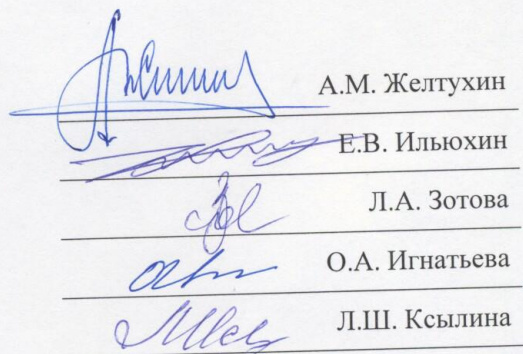 А.М. Желтухин
Е.В. Ильюхин
Л.А. Зотова
О.А. Игнатьева
Л.Ш. Ксылина